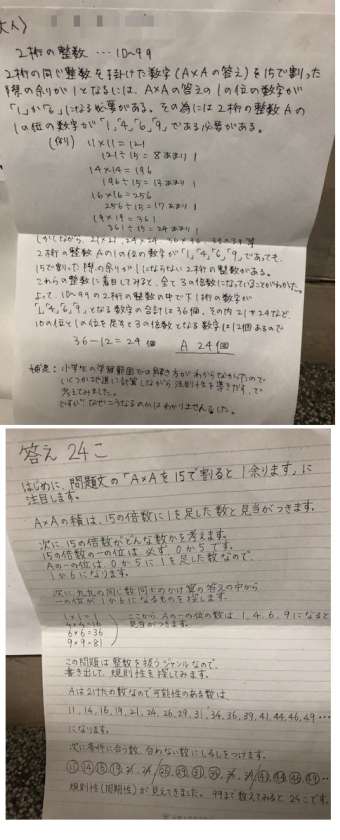 大人)
2桁の整数 … 10~99
2桁の同じ整数を掛けた数字(A×Aの答え)を15で割った
際の余りが1となるには、A×Aの答えの1の位の数字が
「1」か「6」になる必要がある。その為には2桁の整数Aの
1の位の数字が「1,4,6,9」である必要がある。
(例) 11×11=121
121÷15=8あまり1
14×14=196
196÷15=13あまり1
16×16=256
256÷15=17あまり1
19×19=361
361÷15=24あまり1
しかしながら、21×21, 24×24
2桁の整数Aの1の位の数字が「1,4,6,9」であっても、
15で割った際の余りが1にならない2桁の整数がある。
これらの整数に着目してみると、全て3の倍数になっていることがわかった。
よって、10~99の2桁の整数の中で下1桁の数字が
「1,4,6,9」となる数字の合計は36個、その内21や24など
10の位と1の位を足すと3の倍数となる数字は12個あるので
36-12=24個 A 24個
補足:小学生の学習範囲での解き方がわからなかったので
いくつか地道に計算しながら法則性を導きだす、で
考えてみました。
ですが「なぜこうなるのか」はわかりませんでした。
答え 24こ
はじめに、問題文の「A×Aを15で割ると1余ります」に
注目します。
A×Aの積は、15の倍数に1を足した数と見当がつきます。
次に15の倍数がどんな数かを考えます。
15の倍数の一の位は必ず、0か5です。
Aの一の位は0か5に1を足した数なので、
1か6になります。
次に九九の同じ数同士のかけ算の答えの中から
一の位が1か6になるものを探します。
1×1=1
4×4=16
6×6=36
9×9=81
ここから、Aの一の位の数は、1,4,6,9になると
見当がつきます。
この問題は整数を扱うジャンルなので、
書き出して、規則性を探してみます。
Aは2けたの数なので可能性のある数は、
11,14,16,19,21,24,26,29,31,34,36,39,41,44,46,49…
になります。
次に条件に合う数、合わない数にしるしをつけます。
⑪⑭⑯⑲,21,24,㉖㉙㉛㉞,36,39,㊶㊹㊻㊾…
規則性(周期性)が見えてきました。99まで数えてみると24こです。